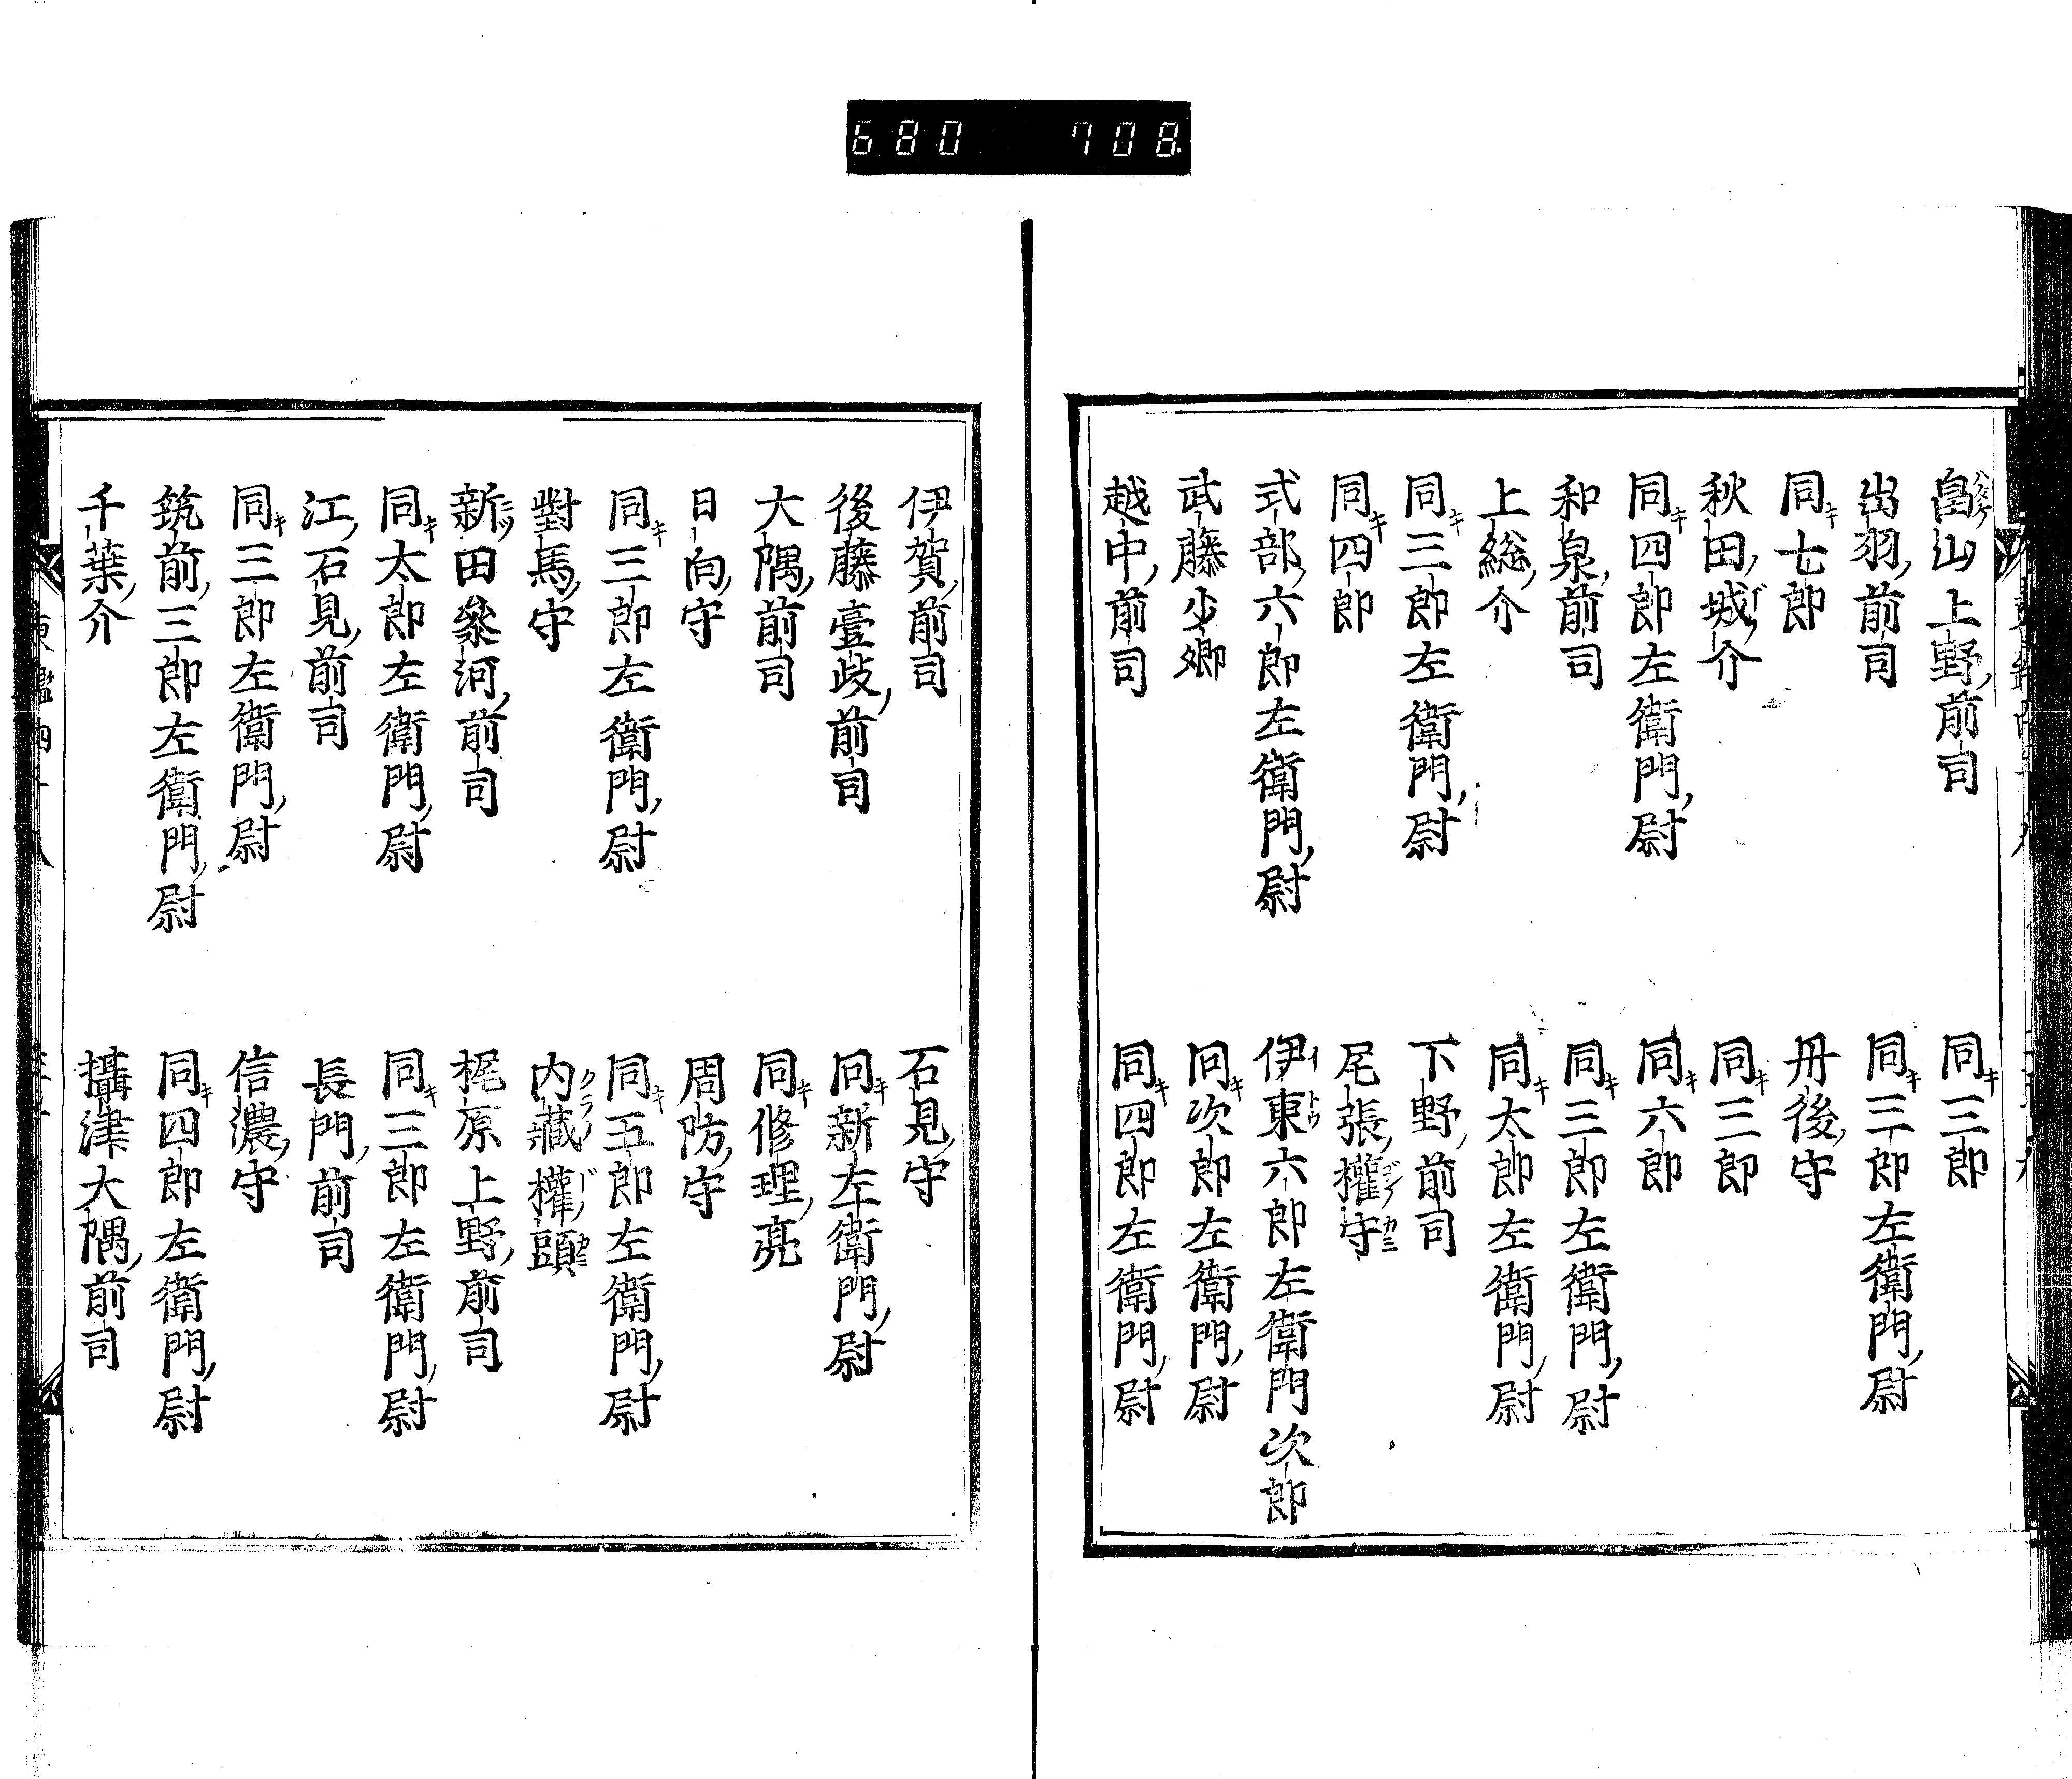 680 708.
畠山上野前司 同三郎
出羽前司 同三郎左衛門尉
同七郎 丹後守
秋田城介 同三郎
同四郎左衛門尉 同六郎
和泉前司 同三郎左衛門尉
上総介 同太郎左衛門尉
同三郎左衛門尉 下野前司
同四郎 尾張權守
式部六郎左衛門尉 伊東六郎左衛門次郎
武藤少卿 同次郎左衛門尉
越中前司 同四郎左衛門尉
伊賀前司 石見守
後藤壹岐前司 同新左衛門尉
大隅前司 同修理亮
日向守 周防守
同三郎左衛門尉 同五郎左衛門尉
對馬守 内藏權頭
新田叅河前司 梶原上野前司
同太郎左衛門尉 同三郎左衛門尉
江石見前司 長門前司
同三郎左衛門尉 信濃守
筑前三郎左衛門尉 同四郎左衛門尉
千葉介 攝津大隅前司